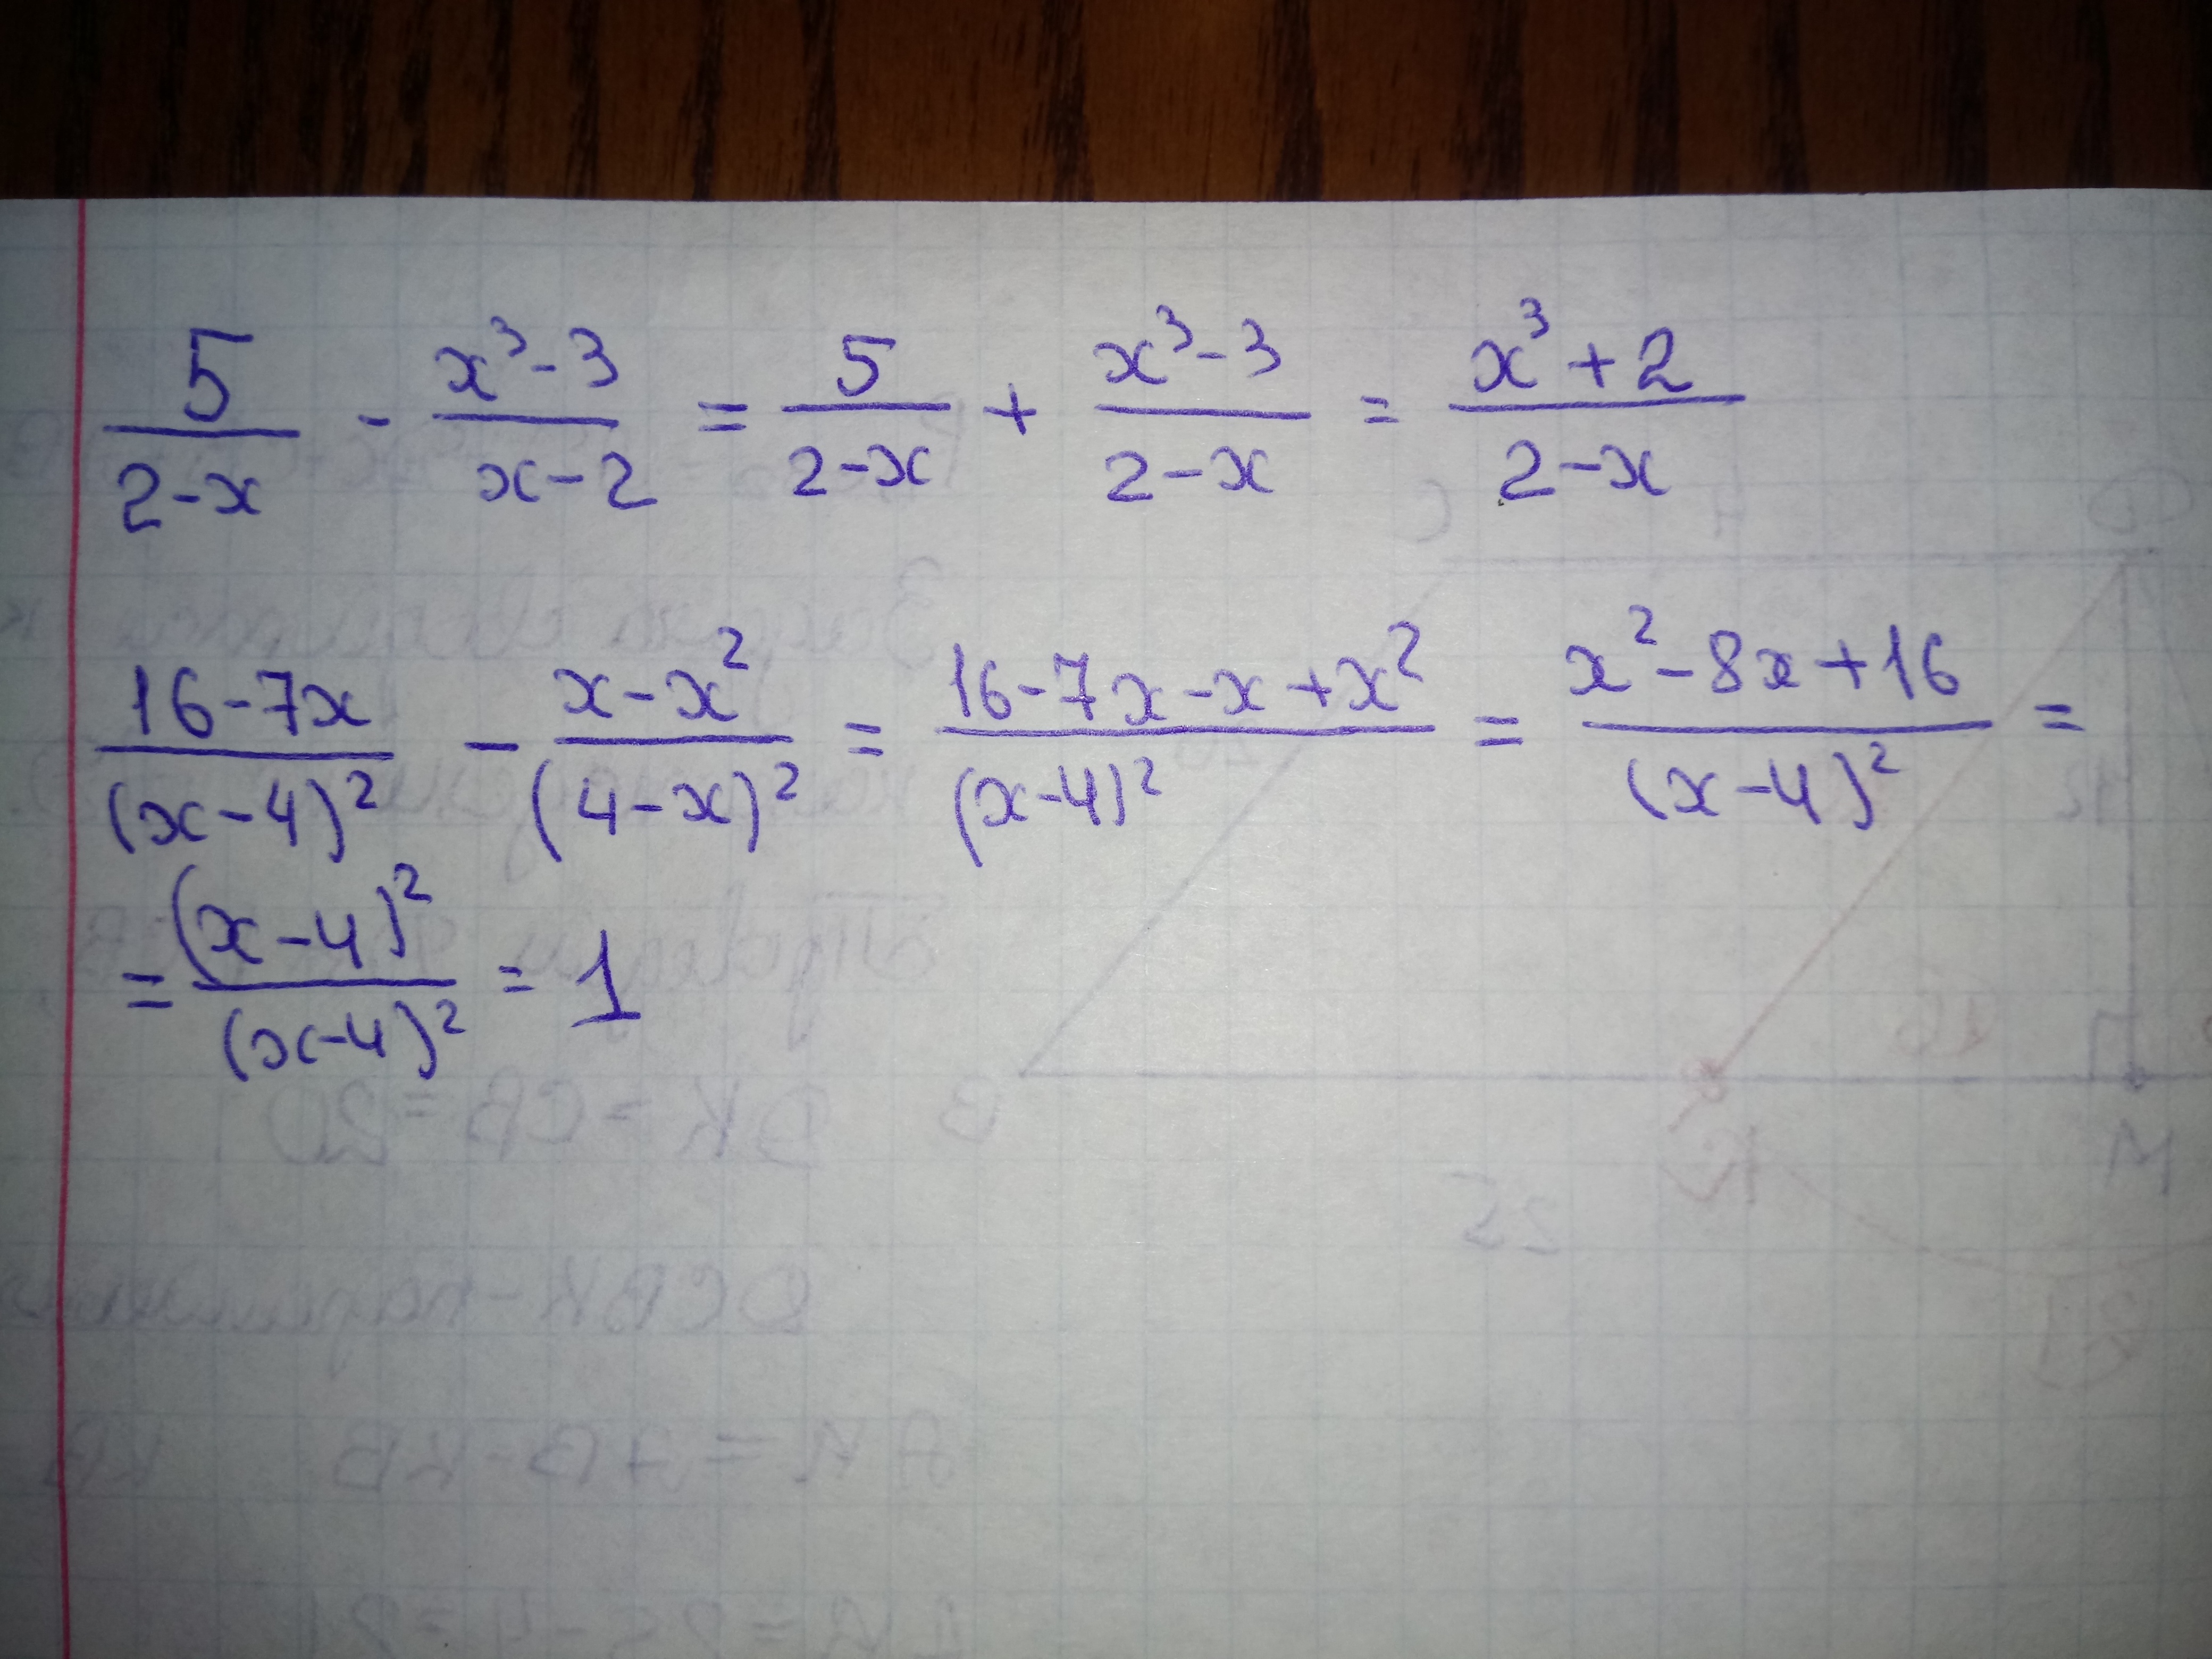 5/(2-x) - (x³-3)/(x-2) = 5/(2-x) + (x³-3)/(2-x) = (x³+2)/(2-x)
(16-7x)/(x-4)² - (x-x²)/(4-x)² = (16-7x-x+x²)/(x-4)² = (x²-8x+16)/(x-4)² =
= (x-4)²/(x-4)² = 1